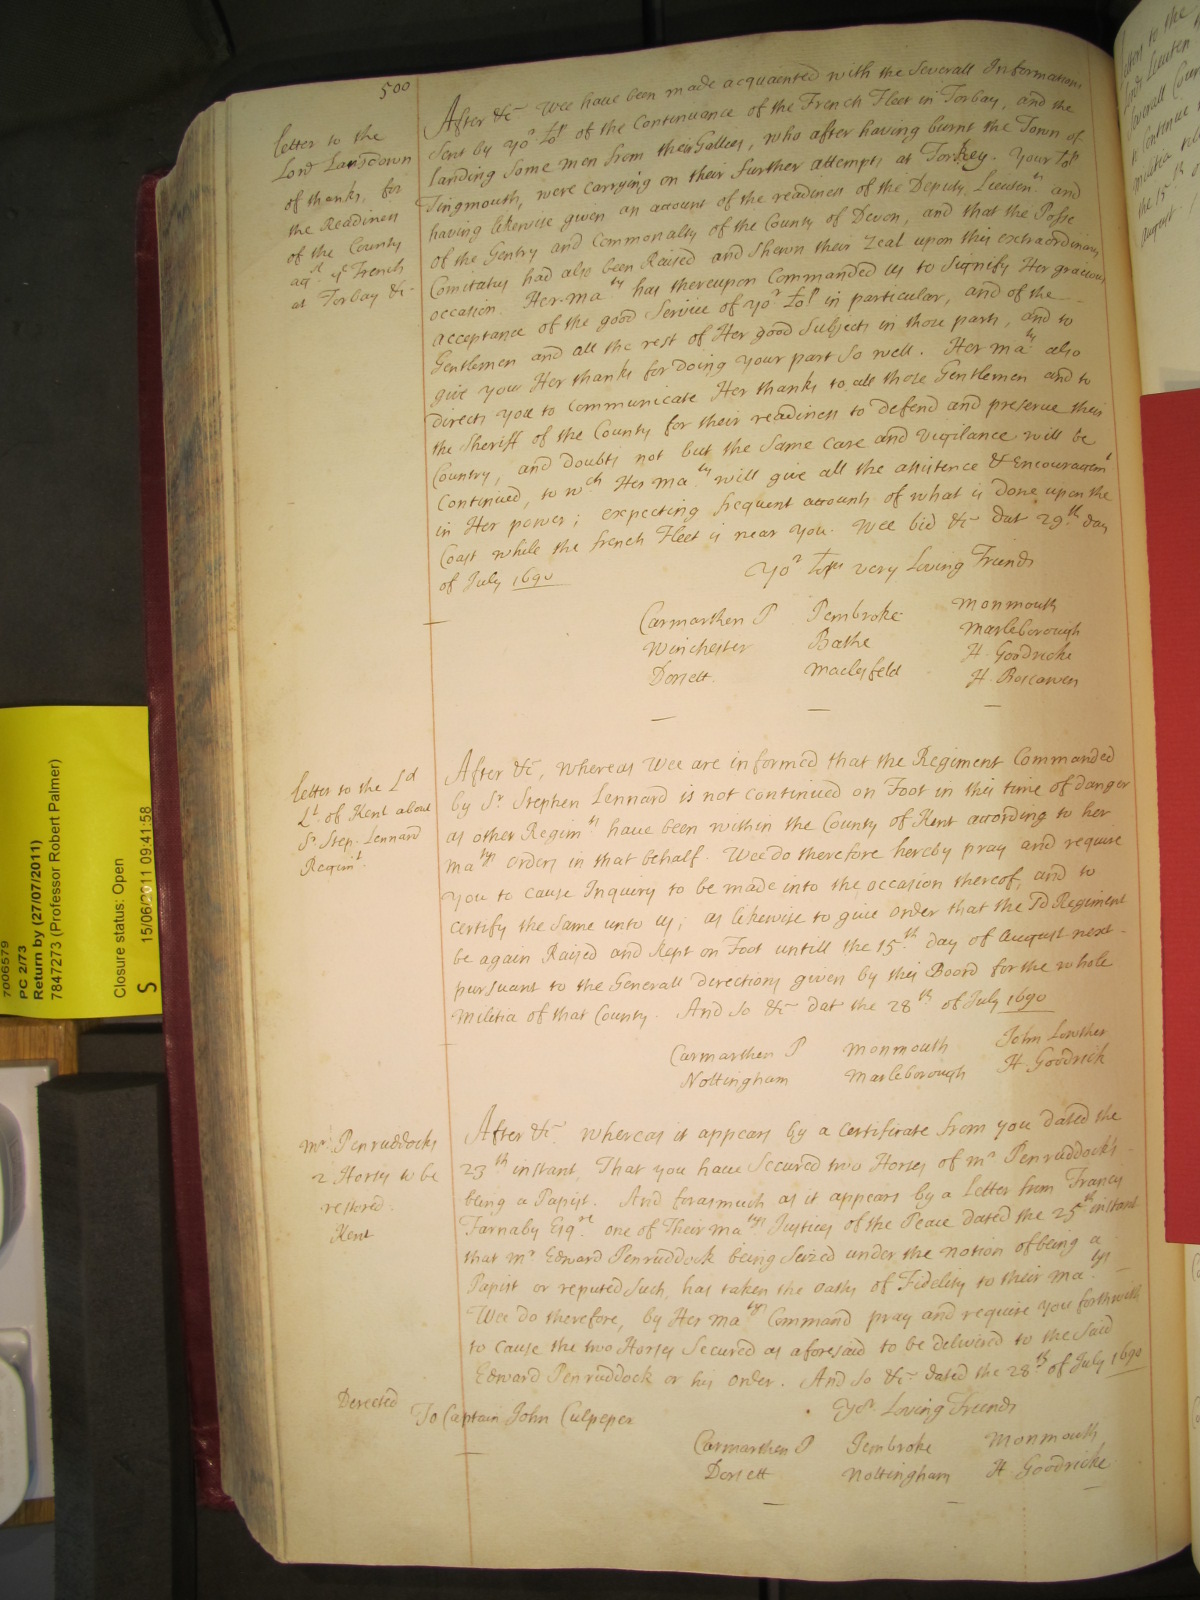 500
Letter to the
Lord Lansdown
of thanks, for
the Readiness
of the County
agst ye French
at Torbay &c
After &c Wee have been made acquainted with the Severall Informations
sent by yor Lop of the Continuance of the French Fleet in Torbay, and the
landing some men from their Gallies, who after having burnt the Town of
Tingmouth, were carrying on their further attempts at Torkey. Your Lop
having likewise given an account of the readiness of the Deputy Lieutents and
of the Gentry and Commonalty of the County of Devon, and that the Posse
Comitatus had also been Raised and Shewn their Zeal upon this extraordinary
occasion. Her Maty has thereupon Commanded us to Signify Her gracious
acceptance of the good Service of yor Lop in particular, and of the
Gentlemen and all the rest of Her good Subjects in those parts, and to
give you Her thanks for doing your part so well. Her Maty also
directs you to Communicate Her thanks to all those Gentlemen and to
the Sheriff of the County for their readiness to defend and preserve their
Country, and doubts not but the same care and vigilance will be
Continued, to wch Her Maty will give all the assistence & Encouragemt
in Her power; expecting frequent accounts of what is done upon the
Coast while the French Fleet is near you. Wee bid &c dat 29th day
of July 1690
Yor Lops very Loving Friends
Carmarthen P Pembroke Monmouth
Winchester Bathe Marleborough
Dorsett Maclesfeld H. Goodricke
H. Boscawen
Letter to the Ld
Lt of Kent about
Sr Step. Lennard
Regimt
After &c, whereas Wee are informed that the Regiment Commanded
by Sr Stephen Lennard is not continued on Foot in this time of danger
as other Regimts have been within the County of Kent according to her
Matys orders in that behalf. Wee do therefore hereby pray and require
you to cause Inquiry to be made into the occasion thereof, and to
certify the same unto us; as likewise to give order that the sd Regiment
be again Raised and Kept on Foot untill the 15th day of August next
pursuant to the Generall directions given by this Board for the whole
Militia of that County. And so &c dat the 28th of July 1690
Carmarthen P Monmouth John Lowther
Nottingham Marleborough H. Goodrick
Mr Penruddocks
2 Horses to be
restored.
Kent
After &c whereas it appears by a Certificate from you dated the
23th instant, That you have Secured two Horses of Mr Penruddock's
being a Papist. And forasmuch as it appears by a Letter from Francis
Farnaby Esqre one of Their Matys Justices of the Peace dated the 25th instant
that Mr Edward Penruddock being Seized under the notion of being a
Papist or reputed such, has taken the oaths of Fidelity to their Matys
Wee do therefore, by Her Matys Command pray and require you forthwith
to cause the two Horses Secured as aforesaid to be delivered to the said
Edward Penruddock or his order. And so &c dated the 28th of July 1690
Derected
To Captain John Culpeper
Yor Loving Friends
Carmarthen P Pembroke Monmouth
Dorsett Nottingham H. Goodricke
7006579
PC 2/73
Return by (27/07/2011)
7847273 (Professor Robert Palmer)
Closure status: Open
S 15/06/2011 09:41:58